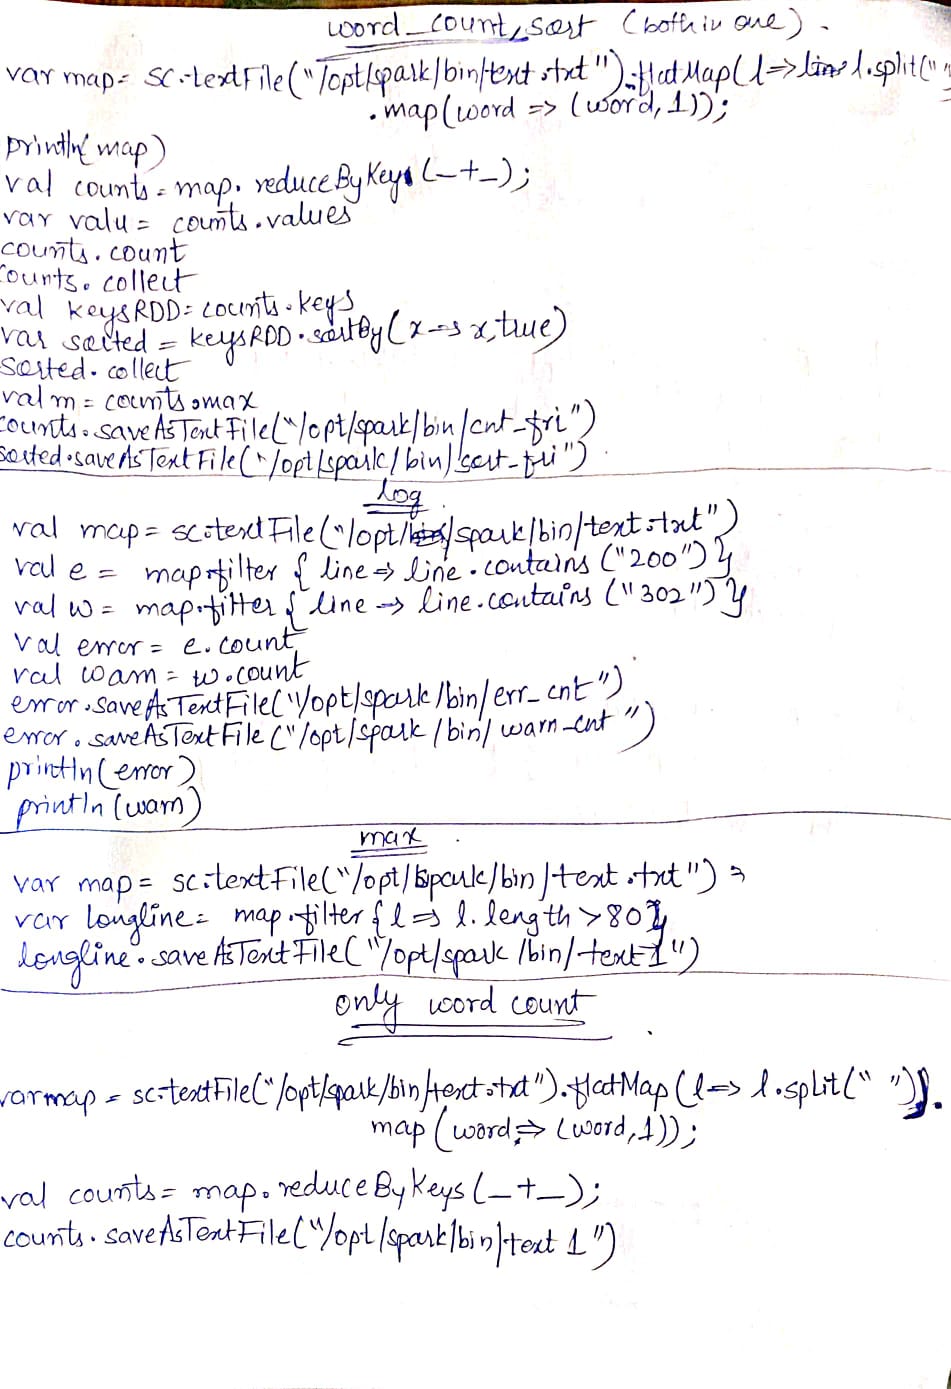 word_count, sort (both in one).
var map = sc.textFile("/opt/spark/bin/text.txt").flatMap(l=> l.split(" "
.map(word => (word, 1));
println(map)
val counts = map. reduceByKeys (_+_);
var valu = counts.values
counts. count
counts. collect
val keysRDD = counts. keys
var sorted = keysRDD. sortBy (x => x, true)
sorted. collect
val m = counts.max
counts.saveAsTextFile("/opt/spark/bin/cnt_fri")
sorted.saveAsTextFile("/opt/spark/bin/sort_fri")
log
val map = sc.textFile("/opt/spark/bin/text.txt")
val e = map.filter { line => line.contains ("200") }
val w = map.filter { line => line.contains ("302") }
val error = e. count
val warn = w.count
error.saveAsTextFile("/opt/spark/bin/err_cnt")
error.saveAsTextFile ("/opt/spark/bin/warn_cnt")
println (error)
println (warn)
max
var map = sc.textFile("/opt/spark/bin/text.txt")
var longline = map.filter { l => l.length >80}
longline.saveAsTextFile("/opt/spark/bin/text1")
only word count
var map = sc.textFile("/opt/spark/bin/text.txt").flatMap (l=> l.split(" ")).
map (word => (word,1));
val counts = map. reduceByKeys (_+_);
counts. saveAsTextFile("/opt/spark/bin/text 1")